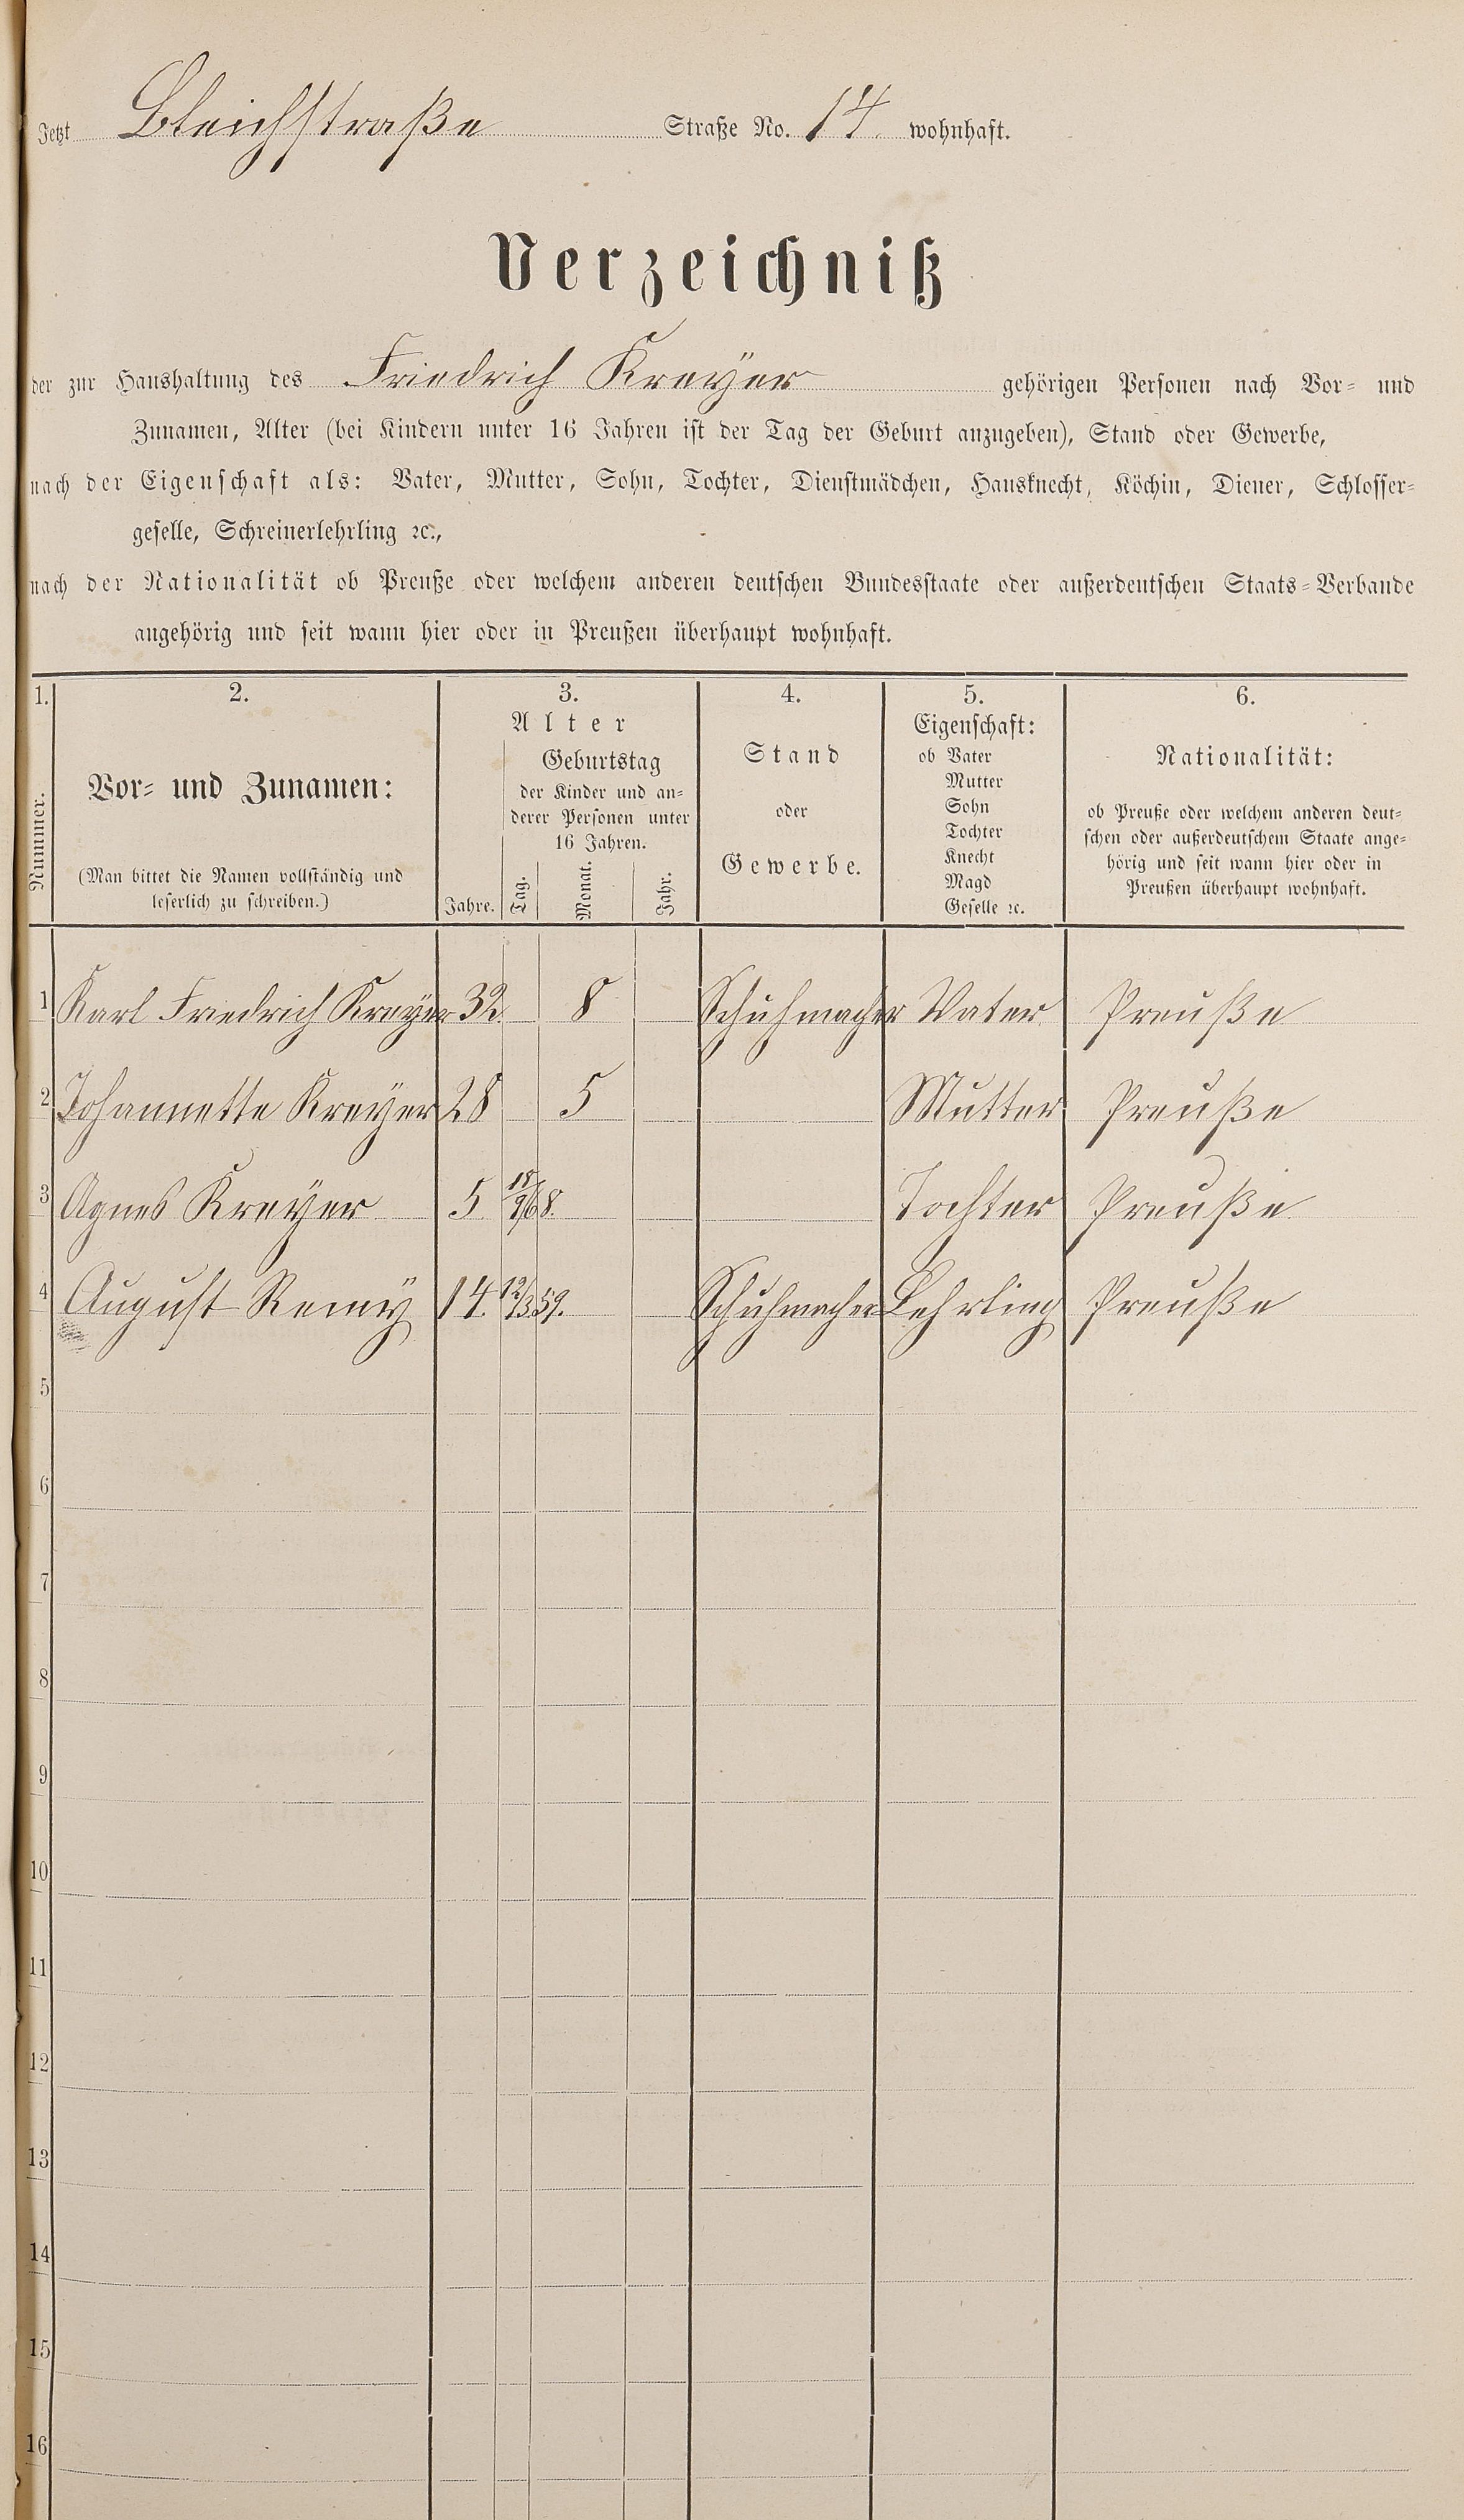 Jetzt Bleichstraße Straße No. 14. wohnhaft.
Verzeichniß
der zur Haushaltung des Friedrich Kreyer gehörigen Personen nach Vor- und
Zunamen, Alter (bei Kindern unter 16 Jahren ist der Tag der Geburt anzugeben), Stand oder Gewerbe,
nach der Eigenschaft als: Vater, Mutter, Sohn, Tochter, Dienstmädchen, Hausknecht, Köchin, Diener, Schlosser-
geselle, Schreinerlehrling ꝛc.,
nach der Nationalität ob Preuße oder welchem anderen deutschen Bundesstaate oder außerdeutschen Staats-Verbande
angehörig und seit wann hier oder in Preußen überhaupt wohnhaft.
1. 2. 3. 4. 5. 6.
Nummer.
Vor- und Zunamen:
(Man bittet die Namen vollständig und
leserlich zu schreiben.)
Alter
Jahre.
Geburtstag
der Kinder und an-
derer Personen unter
16 Jahren.
Tag. Monat. Jahr.
Stand
oder
Gewerbe.
Eigenschaft:
ob Vater
Mutter
Sohn
Tochter
Knecht
Magd
Geselle ꝛc.
Nationalität:
ob Preuße oder welchem anderen deut-
schen oder außerdeutschem Staate ange-
hörig und seit wann hier oder in
Preußen überhaupt wohnhaft.
1 Karl Friedrich Kreyer 32. 8 Schuhmacher Vater. Preuße
2 Johannette Kreyer 28 5 Mutter Preuße
3 Agnes Kreyer 5 18/9 68. Tochter Preuße
4 August Remy 14. 12/3 59. Schuhmacher Lehrling Preuße
5
6
7
8
9
10
11
12
13
14
15
16